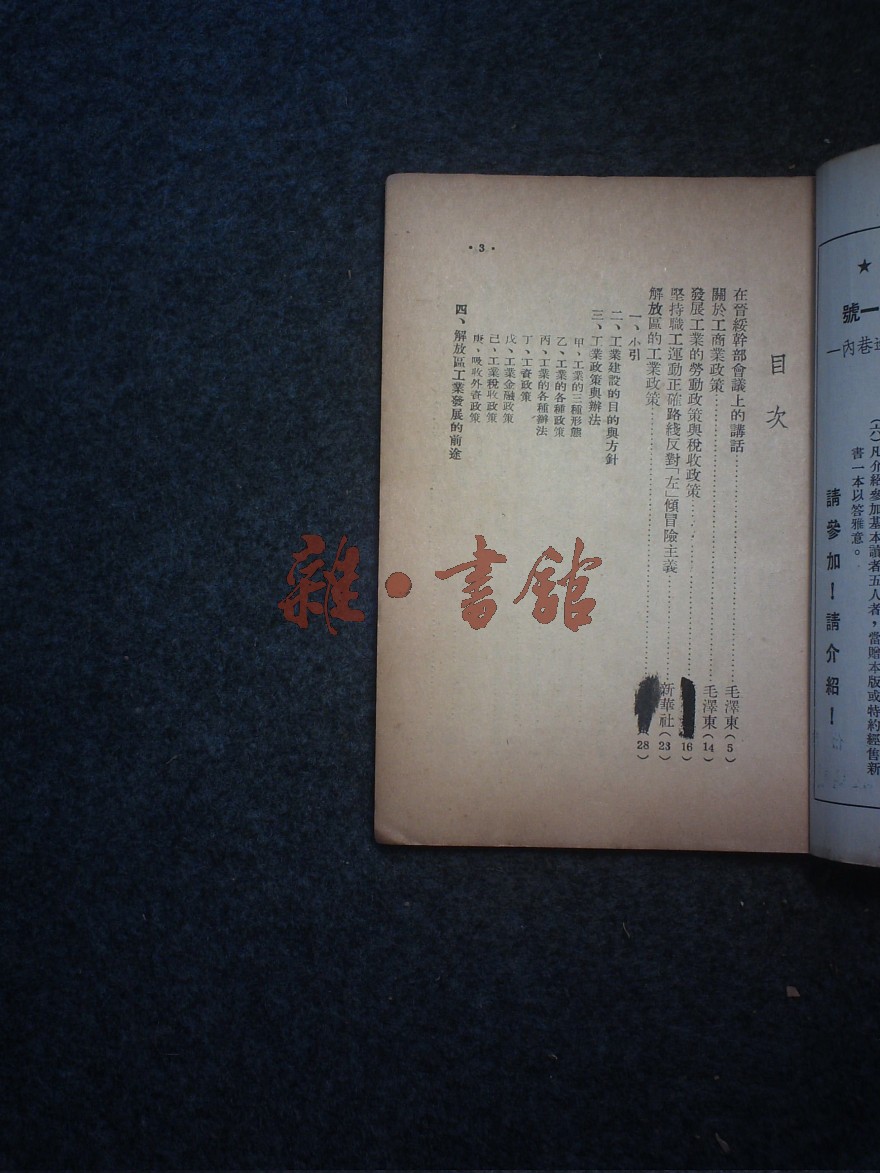 ★
一號
巷內一
(六)凡介紹參加基本讀者五人者，當贈本版或特約經售新
書一本以答雅意。
請參加！請介紹！
目次
在晉綏幹部會議上的講話……毛澤東(5)
關於工商業政策……毛澤東(14)
發展工業的勞動政策與稅收政策……(16)
堅持職工運動正確路綫反對「左」傾冒險主義……新華社(23)
解放區的工業政策……(28)
一、小引
二、工業建設的目的與方針
三、工業政策與辦法
甲、工業的三種形態
乙、工業的各種政策
丙、工業的各種辦法
丁、工資政策
戊、工業金融政策
己、工業稅收政策
庚、吸收外資政策
四、解放區工業發展的前途
·3·
雜·書館